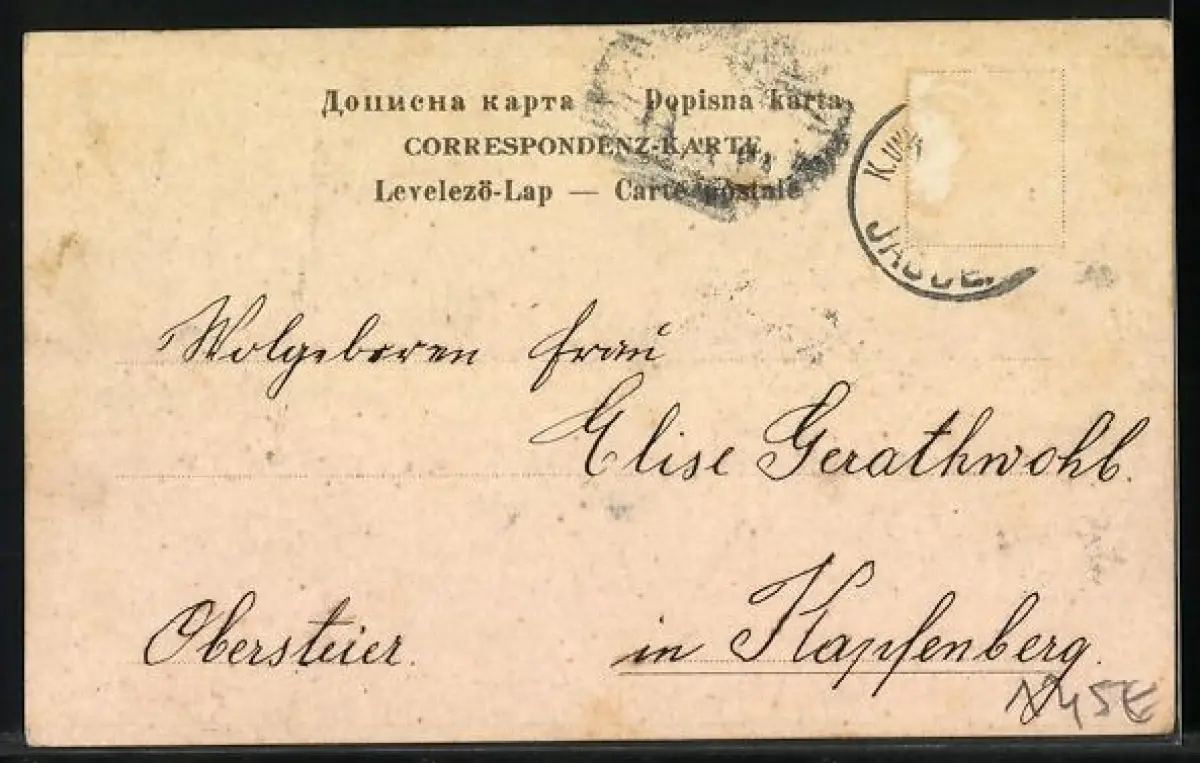 Дописна карта — Dopisna karta
CORRESPONDENZ-KARTE
Levelező-Lap — Carte postale
K. UND
Wolgeboren Frau
Elise Gerathwohl.
Obersteier. in Kapfenberg.
45€